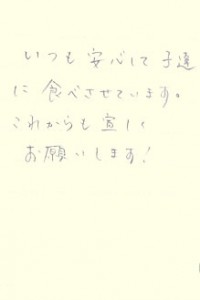 いつも安心して子達
に食べさせています。
これからも宜しく
お願いします!